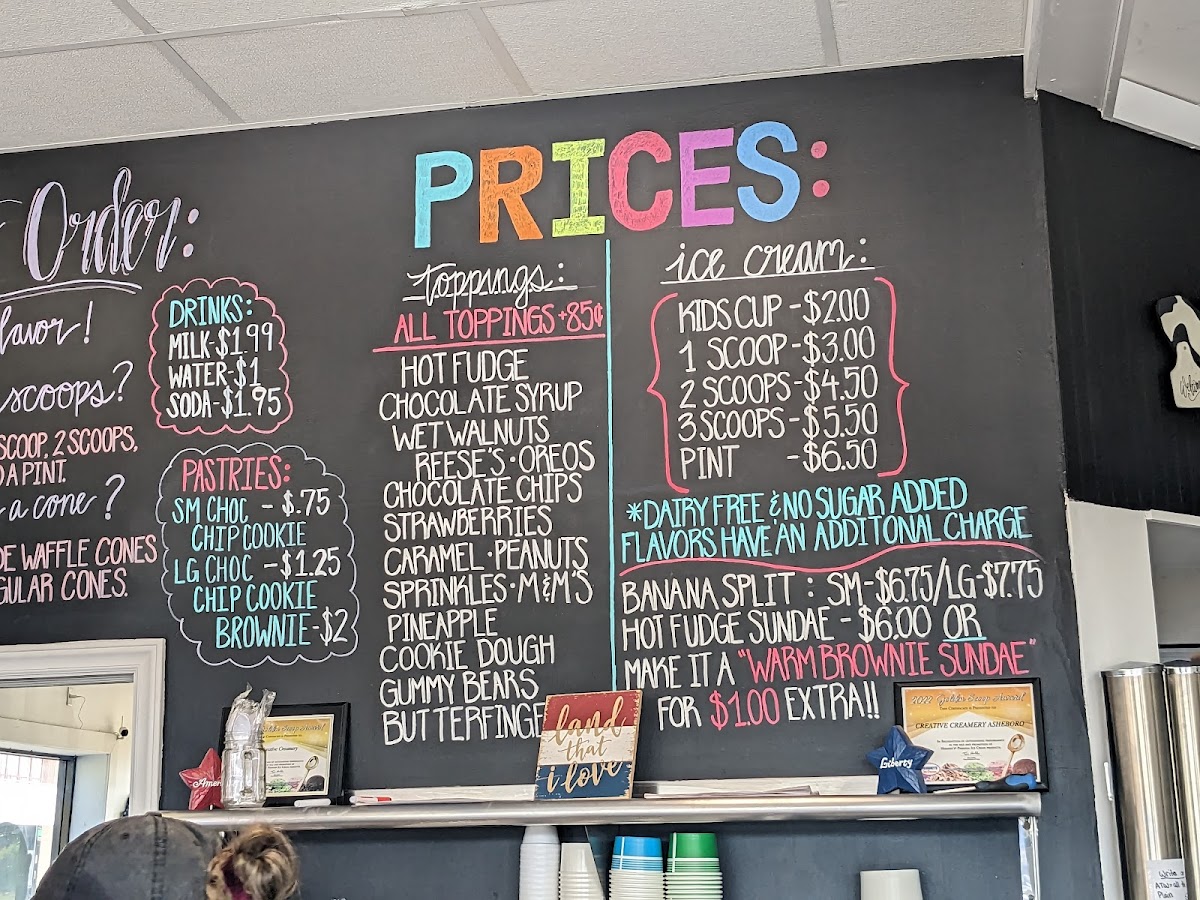 Order:
flavor!
scoops?
SCOOP, 2 SCOOPS,
A PINT.
a cone?
WAFFLE CONES
CONES.
DRINKS:
MILK-$1.99
WATER-$1
SODA-$1.95
PASTRIES:
SM CHOC - $.75
CHIP COOKIE
LG CHOC - $1.25
CHIP COOKIE
BROWNIE-$2
PRICES:
toppings:
ALL TOPPINGS +85¢
HOT FUDGE
CHOCOLATE SYRUP
WET WALNUTS
REESE'S · OREOS
CHOCOLATE CHIPS
STRAWBERRIES
CARAMEL · PEANUTS
SPRINKLES · M&M'S
PINEAPPLE
COOKIE DOUGH
GUMMY BEARS
BUTTERFINGE
ice cream:
KIDS CUP - $2.00
1 SCOOP - $3.00
2 SCOOPS - $4.50
3 SCOOPS - $5.50
PINT - $6.50
*DAIRY FREE & NO SUGAR ADDED
FLAVORS HAVE AN ADDITONAL CHARGE
BANANA SPLIT : SM-$6.75/LG-$7.75
HOT FUDGE SUNDAE - $6.00 OR
MAKE IT A "WARM BROWNIE SUNDAE"
FOR $1.00 EXTRA!!
land
that
i love
Liberty
CREATIVE CREAMERY ASHEBORO